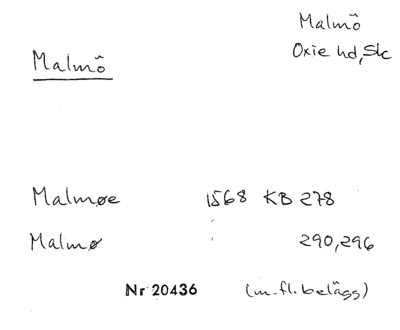 Malmö
Oxie hd, Sk
Malmö
Malmøe 1568 KB 278
Malmø " 290, 296
Nr 20436 (m. fl. belägg)